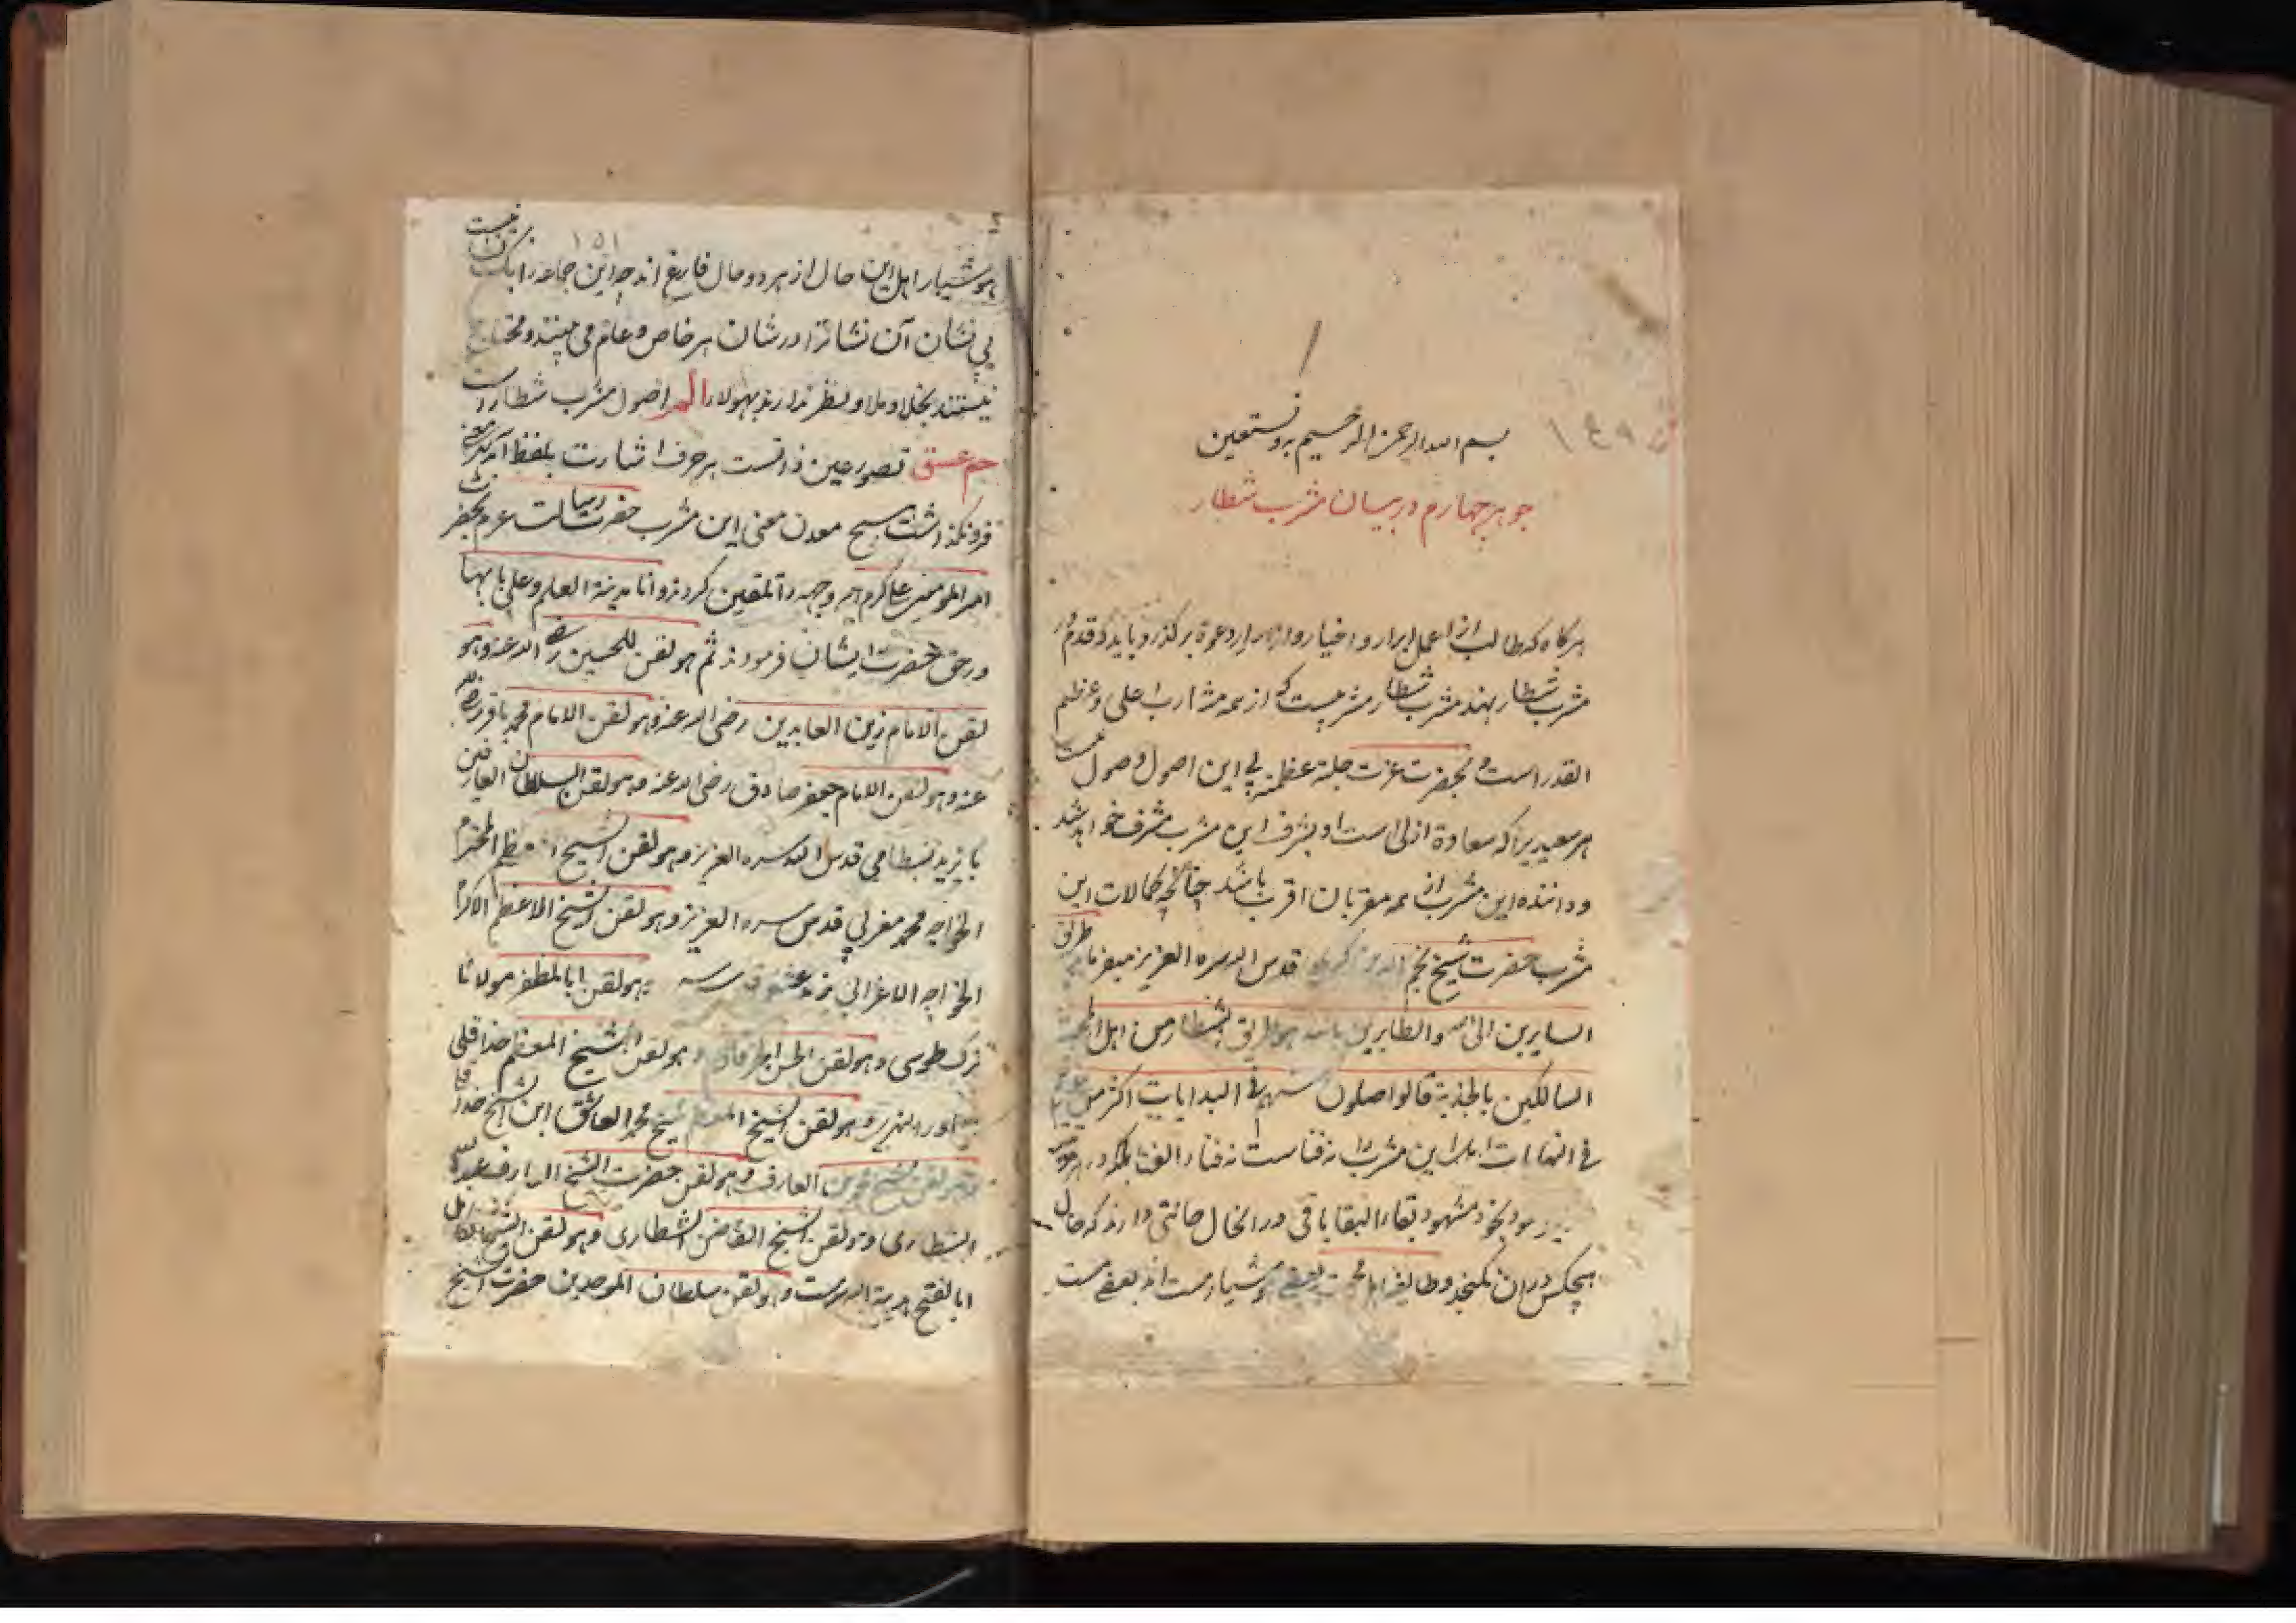 بسم الله الرحمن الرحیم و به نستعین
جوهر چهارم در بیان مشرب شطار
هرگاه که طالب از اعمال ابرار و اخیار و دعوة برگذرد باید که قدم در
مشرب شطار بنهد مشرب شطار مشربیست که از همه مشارب اعلی و عظیم
القدر است و بحضرت عزت جلة عظمته بی این اصول وصول نیست
هر سعیدیرا که سعادة ازلی است او بشرف این مشرب مشرف خواهد شد
و داننده این مشرب از همه مقربان اقرب باشد چنانچه کمالات این
مشرب حضرت شیخ نجم الدین کبری قدس الله سره العزیز میفرماید طریق
السایرین الی الله والطایرین بالله هو طریق الشطار من اهل المحبة
السالکین بالجذبة قالواصلون منهم فی البدایات اکثر من غیرهم
فی النهایات اهل این مشرب را نه فناست نه فناء الفنا بلکه در
بخود مشهود بقاء البقا باقی در الحال حالتی دارند که حال
هیچکس در ان نگنجد و طایفه اهل محبت بعضی هوشیار مست اند بعضی مست
۱۵۱
هوشیار اهل این حال از هر دو حال فارغ اند چه این جماعه را
بی نشان آن نشانرا در شان هر خاص و عام می بینند و محتاج
نیستند بخلا و ملا و نظر ندارند بهولا المر اصول مشرب شطار
حم عسق تصور عین ذاتست بر حرف اشارت بلفظ
فرونگذاشت هیچ معدن معنی این مشرب حضرت رسالت عم بحضرت
امیر المومنین علی کرم الله وجهه را تلقین کردند و انا مدینة العلم وعلی بابها
در حق حضرت ایشان فرمودند ثم هو لقن للحسین رضی الله عنه وهو
لقن الامام زین العابدین رضی الله عنه وهو لقن الامام محمد باقر رضی الله
عنه وهو لقن الامام جعفر صادق رضی الله عنه وهو لقن السلطان العارفین
بایزید بسطامی قدس الله سره العزیز وهو لقن الشیخ المحترم
الخواجه محمد مغربی قدس سره العزیز وهو لقن الشیخ الاعظم الاکرم
الخواجه الاعرابی یزید عشقی قدس سره وهو لقن ابا المظفر مولانا
ترک طوسی وهو لقن ابو الحسن خرقانی وهو لقن الشیخ المعظم خداقلی
ماوراء النهری وهو لقن الشیخ المعظم شیخ محمد العاشق ابن الشیخ خداقلی
وهو لقن الشیخ محمد العارف وهو لقن حضرت الشیخ العارف عبد الله
الشطاری وهو لقن الشیخ القاضن الشطاری وهو لقن الشیخ الکامل
ابا الفتح هدیة الله سرمست وهو لقن سلطان الموحدین حضرت الشیخ